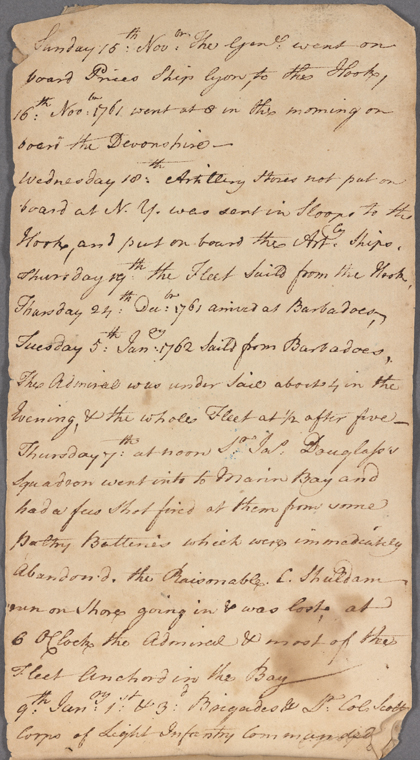 Sunday 15th. Novbr. The Genl. went on
board Prices Ship Lyon, to the Hook,
16th. Novbr. 1761 went at 8 in the morning on
board the Devonshire —
Wednesday 18th. Artillery Stores not put on
board at N. Y. was sent in Sloops to the
Hook, and put on board the Arty. Ships.
Thursday 19th the Fleet Saild from the Hook.
Thursday 24th. Decbr. 1761 arrived at Barbadoes,
Tuesday 5th Jany. 1762 Saild from Barbadoes,
The Admiral was under Sail about 4 in the
Evening, & the whole Fleet at ½ after five —
Thursday 7th. at noon Sr. Jas. Douglass's
Squadron went into Marin Bay and
had a few Shot fired at them from some
Paltry Batteries which were immediately
Abandon'd. the Raisonable C. Shuldam
run on Shore going in & was lost, at
6 OClock the Admiral & most of the
Fleet Anchord in the Bay
9th Jany. 1st & 3d Brigades & Lt. Col. Scott
Corps of Light Infantry Commanded